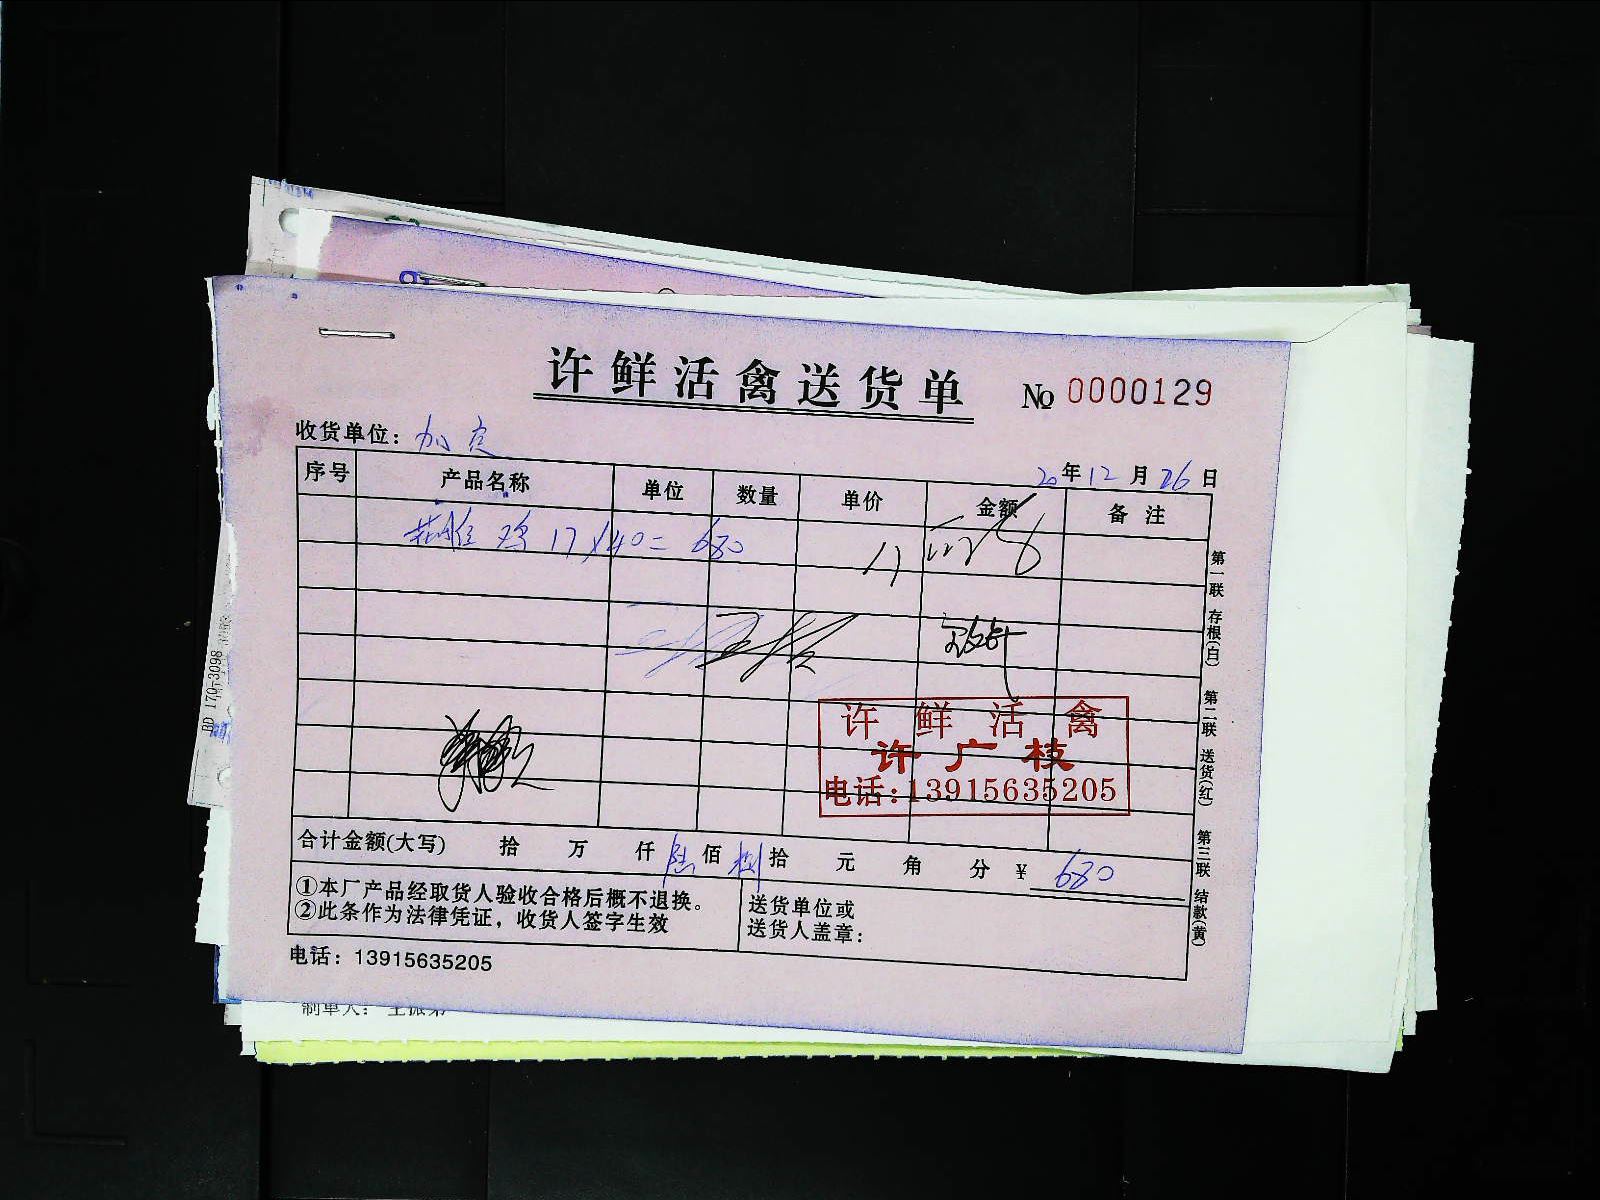 许鲜活禽送货单 № 0000129
收货单位：
20年12月26日
序号 产品名称 单位 数量 单价 金额 备注
鸡 17×40=680
许鲜活禽
许广枝
电话:13915635205
合计金额(大写) 拾 万 仟 陆 佰 捌 拾 元 角 分 ¥ 680
①本厂产品经取货人验收合格后概不退换。
②此条作为法律凭证，收货人签字生效
送货单位或
送货人盖章：
电话：13915635205
第一联 存根(白) 第二联 送货(红) 第三联 结款(黄)
制单人：
BD 170-3098